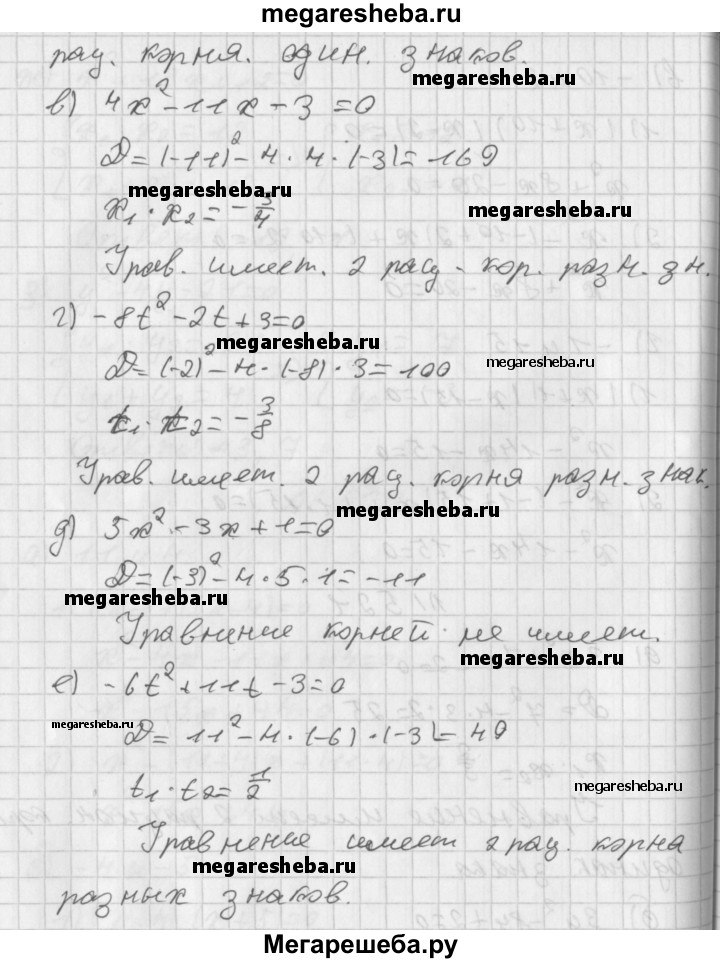 megaresheba.ru
рац. корня. один. знаков.
megaresheba.ru
в) 4x² - 11x - 3 = 0
D = (-11)² - 4 · 4 · (-3) = 169
megaresheba.ru
x₁ · x₂ = - 3/4
megaresheba.ru
Урав. имеет. 2 рац. кор. разн. зн.
г) -8t² - 2t + 3 = 0
megaresheba.ru
D = (-2)² - 4 · (-8) · 3 = 100
megaresheba.ru
t₁ · t₂ = - 3/8
Урав. имеет. 2 рац. корня разн. знак.
megaresheba.ru
д) 5x² - 3x + 1 = 0
D = (-3)² - 4 · 5 · 1 = -11
megaresheba.ru
Уравнение корней не имеет.
megaresheba.ru
е) -6t² + 11t - 3 = 0
megaresheba.ru
D = 11² - 4 · (-6) · (-3) = 49
t₁ · t₂ = 1/2
megaresheba.ru
Уравнение имеет 2 рац. корна
megaresheba.ru
разных знаков.
Мегарешеба.ру